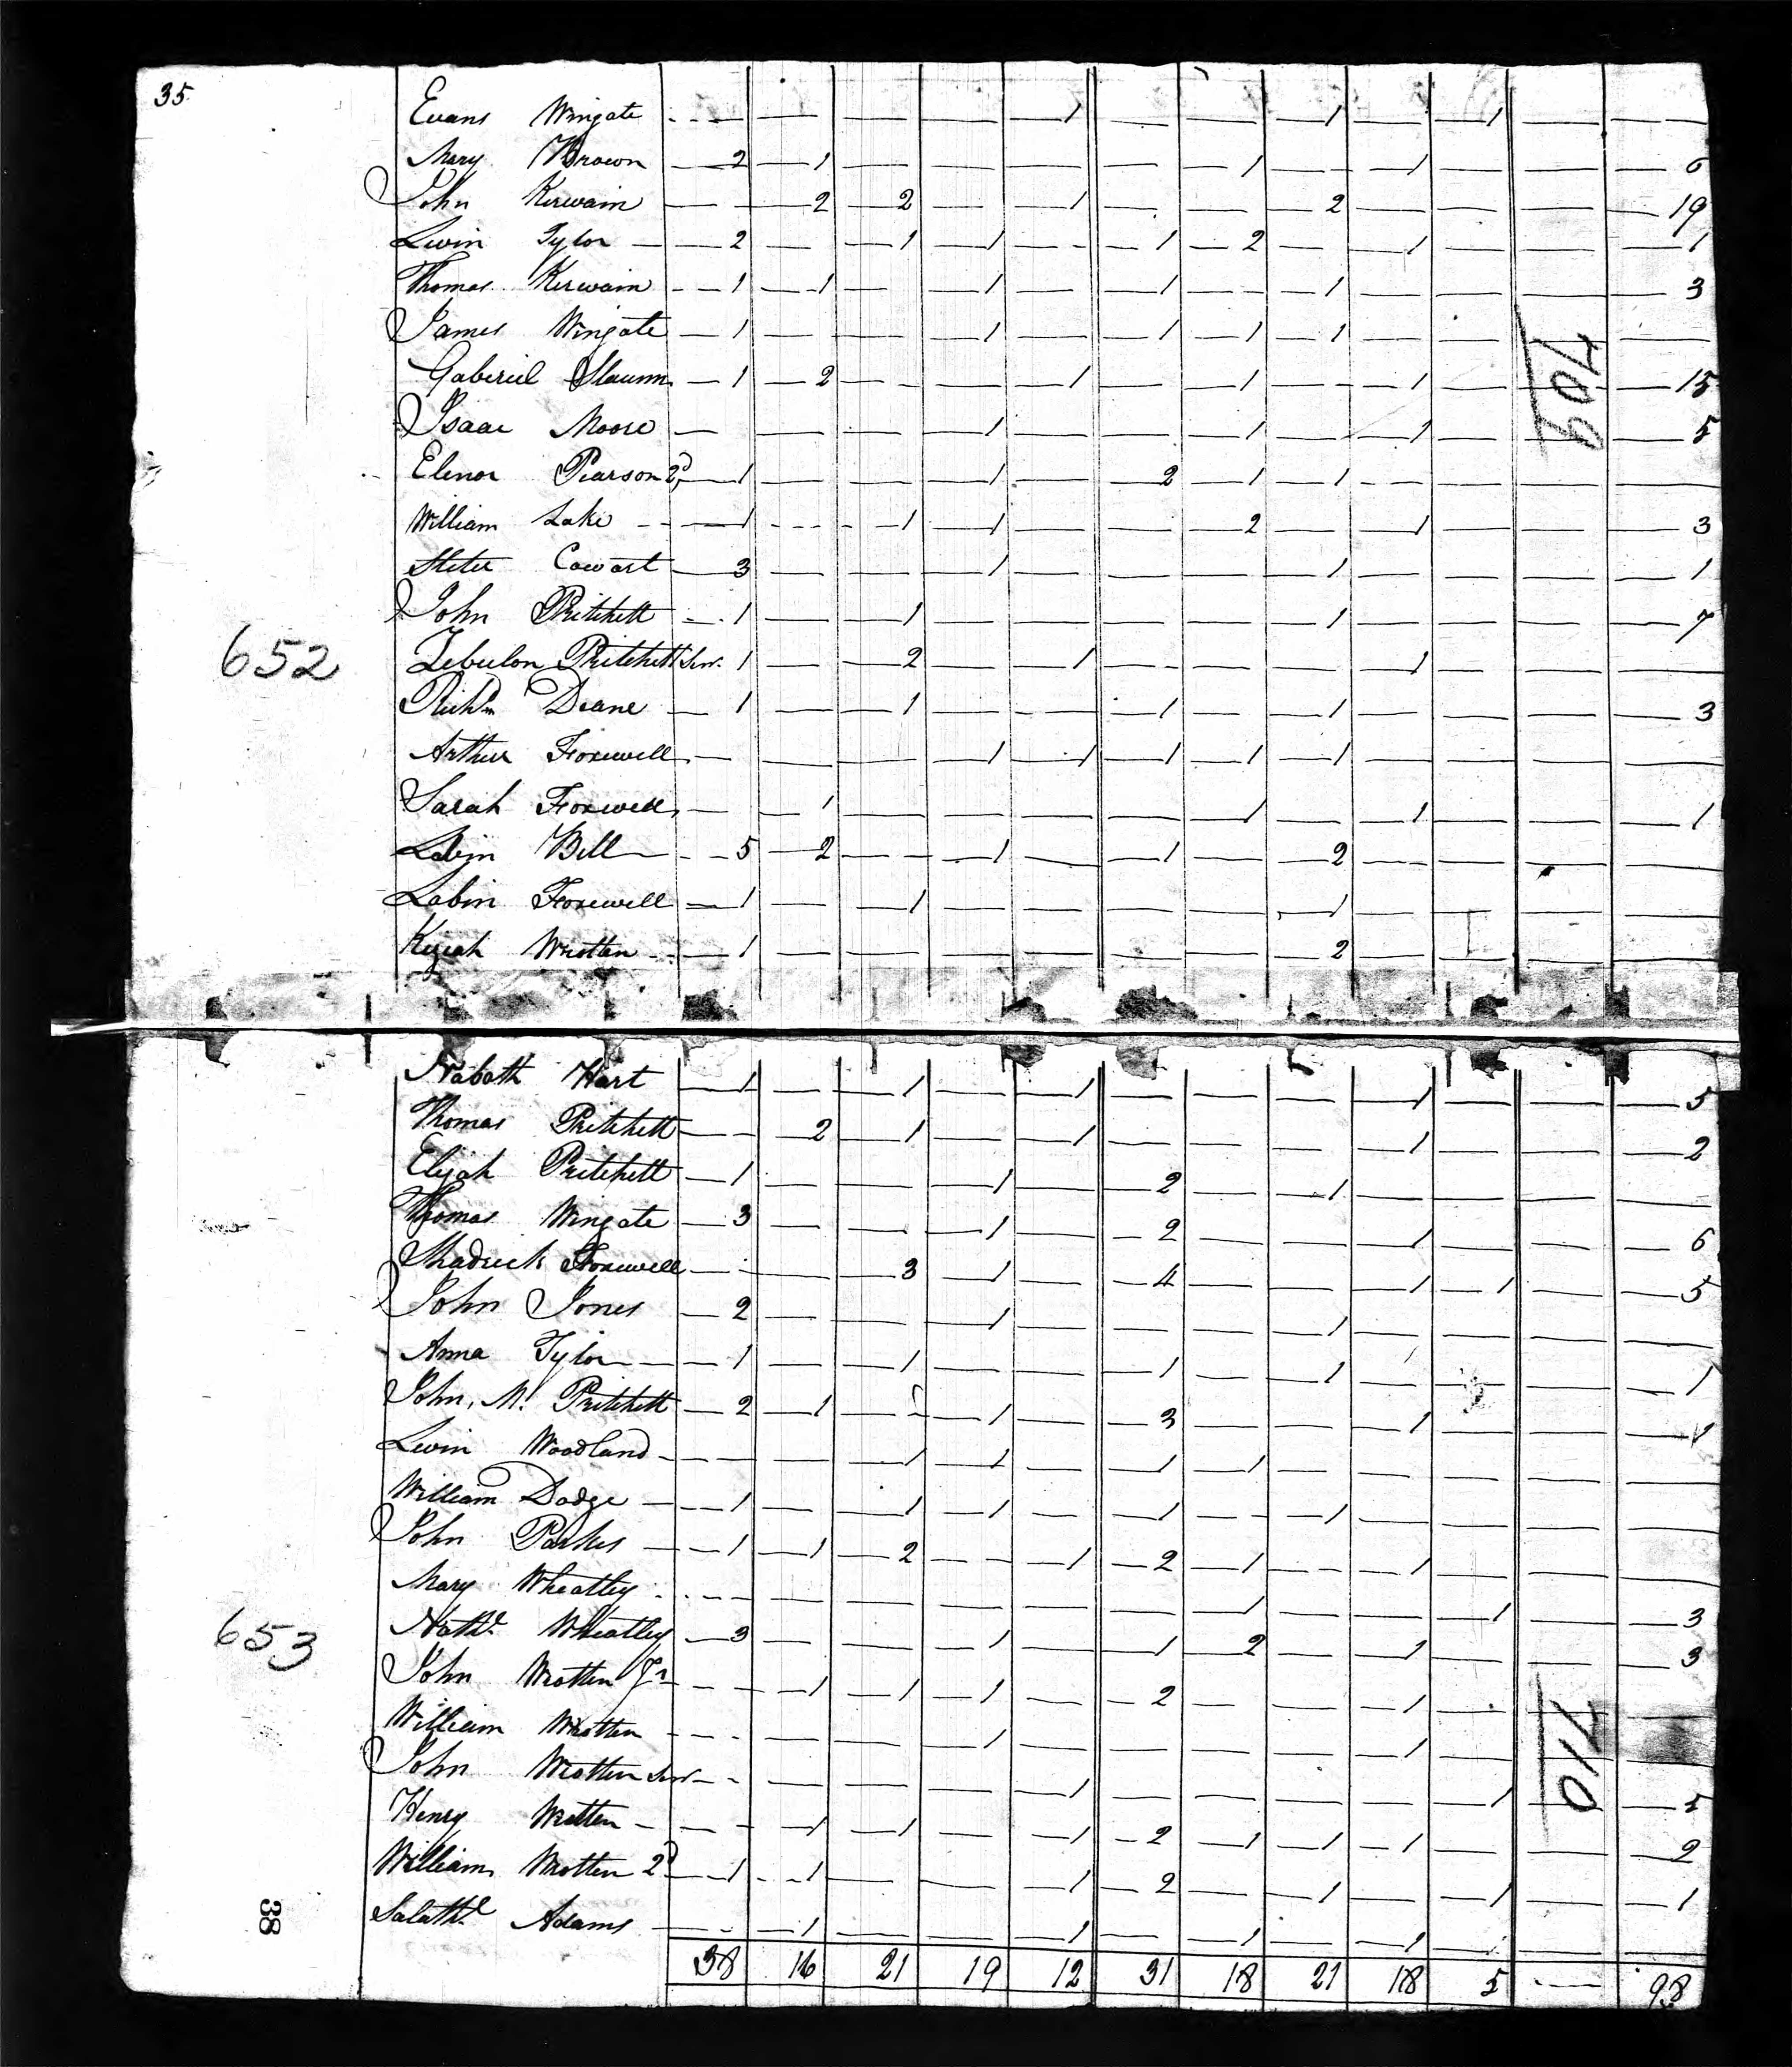 35.
Evans Wingate - - - — — — — 1 — — 1 — 1 — —
Mary Brown — 2 — 1 — — — — — 1 - - 1 — — — 6
John Kirwain — — 2 — 2 — — 1 — — — 2 — — — — 19
Levin Tylor — — 2 — — 1 — 1 - - — 1 — 2 — — 1 — — — 1
Thomas Kirwain - — 1 — 1 — — 1 — — 1 - - — 1 — — — — 3
James Wingate — 1 — — — 1 — — 1 — 1 — 1 — — —
Gaberiel Slaum — 1 — 2 — - — — 1 — — 1 - - — 1 — — — 15
Isaac Moore — — — — 1 — — — 1 — — 1 — — — 5
Elenor Pearson 2d — 1 — — — 1 — — 2 — 1 — 1 - - — — —
William Lake - - — 1 - - - — 1 — 1 — — — 2 — — 1 — — — 3
Cowart — 3 — — — 1 — — — — 1 — — — — 1
John Pritchett — 1 — — 1 — — — — — 1 — — — — 7
Zebulon Pritchett Senr. 1 — — 2 — — 1 - - — — 1 — — —
Richd. Deane — 1 — — 1 — — — 1 — — 1 — — — — 3
Arthur Foxwell — — — — 1 — 1 — 1 — 1 — 1 — — — —
Sarah Foxwell — — 1 — — — — — 1 — — 1 — — — 1
Bell — 5 — 2 — — 1 — — 1 — — 2 - - — — —
Labin Foxwell — 1 — — 1 — — — — — 1 — — — —
Keziah Wrotten - — 1 — — — — — — — 2 — — — —
652
709
Naboth Hart — 1 — — 1 — — 1 — — — 1 — — — 5
Thomas Pritchett — — 2 — 1 — — 1 — — — 1 — — — 2
Elijah Pritchett — 1 — — — 1 — — 2 — — 1 — — — —
Thomas Wingate — 3 — — — 1 — — 2 — — — 1 — — — 6
Shadrick Foxwell — — — 3 — 1 — — 4 — — — 1 — 1 — — 5
John Jones — 2 — — — 1 — — — — 1 — — — —
Anna Tylor — — 1 — — 1 — — — 1 — — 1 — — — 1
John, M. Pritchett — 2 — 1 — — 1 — — 3 — — — 1 — — — 1
Levin Woodland - — — — 1 — 1 — — 1 — 1 — — — — —
William Dodge — — 1 — — 1 — 1 — — 1 - - — 1 — — — —
John Parker — — 1 — 1 — 2 — — 1 — 2 — 1 - - — 1 — — —
Mary Wheatley - - - — — — — — — 1 — — 1 — — 3
Nathl. Wheatley — 3 — — — 1 — — 1 — 2 — — 1 — — — 3
John Wrotten Jr - - — 1 — 1 — 1 — — 2 — — — 1 — — —
William Wrotten - - - — — — 1 — — — — — 1 — — —
John Wrotten Senr - - — — — — 1 — — — — 1 — — 5
Henry Wrotten - - — 1 — 1 — — 1 — 2 — 1 — 1 — 1 — — — 2
William Wrotten 2d — 1 - - 1 — — — 1 — 2 — — 1 — — 1 — — 1
Salathl. Adams — - — 1 — — — 1 — — 1 — — 1 — — —
653
710
38
38 16 21 19 12 31 18 21 18 5 - - - 98